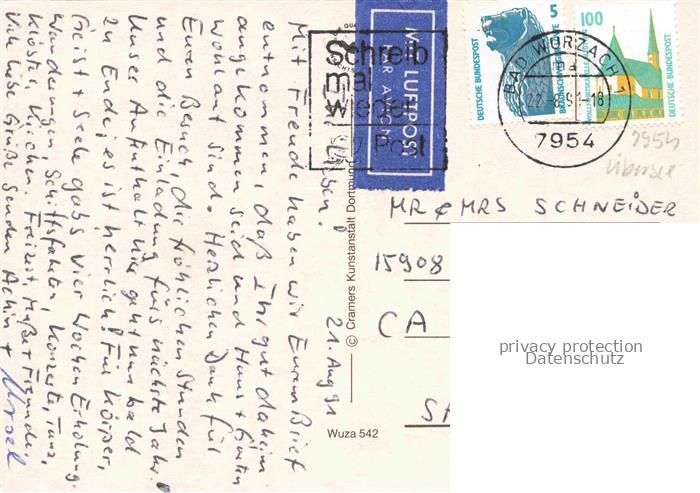 21. Aug 91
Lieben!
Mit Freude haben wir Eurem Brief
entnommen, daß Ihr gut daheim
angekommen seid und Haus + Garten
wohlauf sind. Herzlichen Dank für
Euren Besuch, die fröhlichen Stunden
und die Einladung fürs nächste Jahr!
Unser Aufenthalt hier geht nun bald
zu Ende, es ist herrlich! Für Körper,
Geist + Seele gabs vier Wochen Erholung.
Wanderungen, Schiffsfahrten, Konzerte, Tanz,
Klöster, Kirchen, Freizeit, Muße + Freunde.
Viele liebe Grüße senden Achim + Ursel
© Cramers Kunstanstalt Dortmund
Wuza 542
Schreib
mal
wieder
Post
MIT LUFTPOST
PAR AVION
DEUTSCHE BUNDESPOST
5
DEUTSCHE BUNDESPOST
100
BAD WURZACH 1
-18
7954
7954
MR & MRS SCHNEIDER
15908
CA
SA
privacy protection
Datenschutz